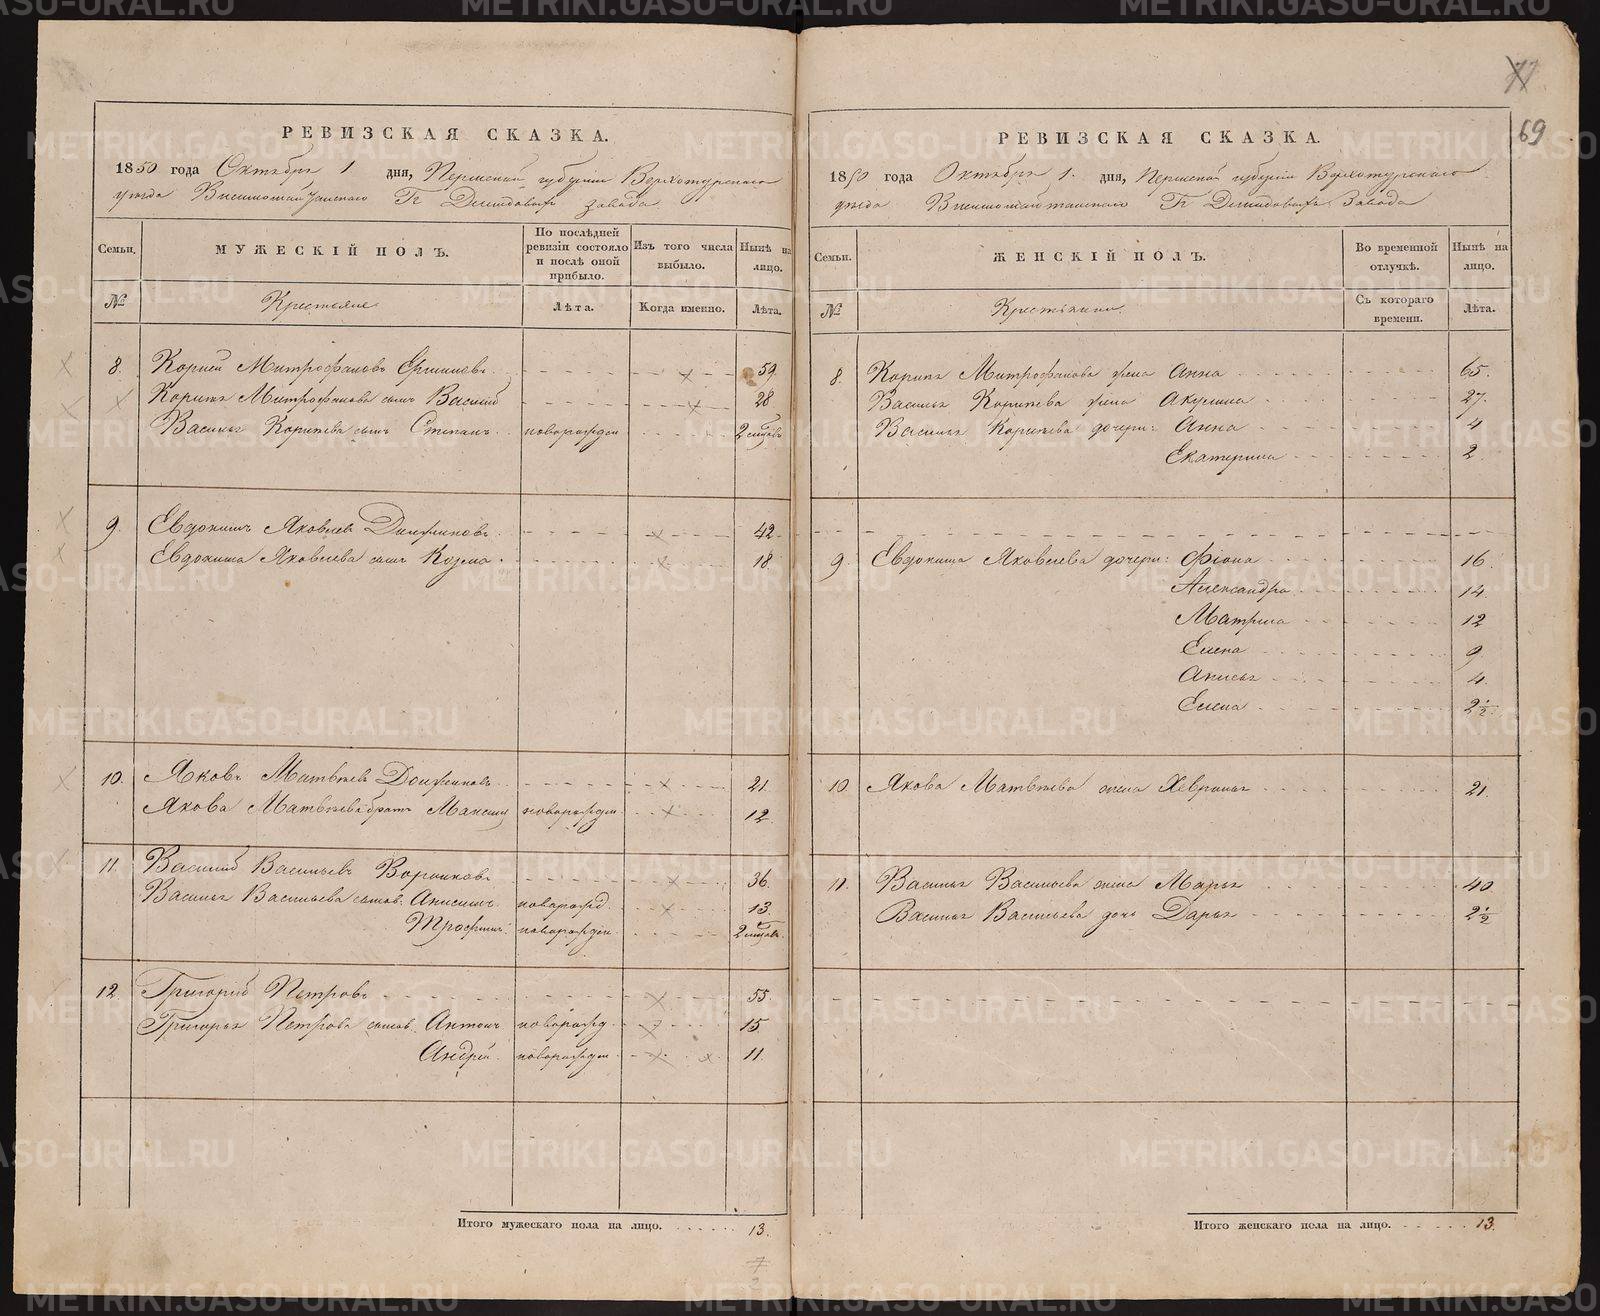 77
69
РЕВИЗСКАЯ СКАЗКА.
1850 года Октября 1 дня, Пермской губернии Верхотурского
уѣзда Висимошайтанскаго Гг Демидовыхъ завода
Семьи.
МУЖЕСКІЙ ПОЛЪ.
По послѣдней ревизіи состояло и послѣ оной прибыло.
Изъ того числа выбыло.
Нынѣ на лицо.
№
Крестьяне
Лѣта.
Когда именно.
Лѣта.
8. Корней Митрофановъ 59
Корнѣя Митрофанова сынъ Василій 28
Василья Корнѣева сынъ Степанъ новорожден 2 мѣсяцъ
9. Евдокимъ Яковлев 42
Евдокима Яковлева сынъ Козма 18
10. Яковъ Матвѣевъ Долженковъ 21.
Якова Матвѣева братъ Максим новорожден 12
11. Василій Васильевъ Воронковъ 36.
Василья Васильева сынов. Анисимъ новорожд. 13.
Трофимъ новорожден. 2 мѣсяцъ
12. Григорій Петровъ 55.
Григорья Петрова сынов. Антонъ новорожд. 15
Андрей новорожден. 11.
Итого мужескаго пола на лицо. 13.
РЕВИЗСКАЯ СКАЗКА.
1850 года Октября 1. дня, Пермской губернии Верхотурскаго
уѣзда Висимошайтанскаго Гг Демидовыхъ Завода
Семьи.
ЖЕНСКІЙ ПОЛЪ.
Во временной отлучкѣ.
Нынѣ на лицо.
№
Крестьянки
Съ котораго времени.
Лѣта.
8. Корнѣя Митрофанова жена Анна 65.
Василья Корнѣева жена Акулина 27.
Василья Корнѣева дочери: Анна 4
Екатерина 2
9. Евдокима Яковлева дочери: Фіона 16.
Александра 14.
Матрена 12
Елена 9
Анисья 4.
Елена 2½.
10 Якова Матвѣева жена Хевронья 21.
11. Василья Васильева жена Марья 40
Василья Васильева дочь Дарья 2½
Итого женскаго пола на лицо. 13.
METRIKI.GASO-URAL.RU